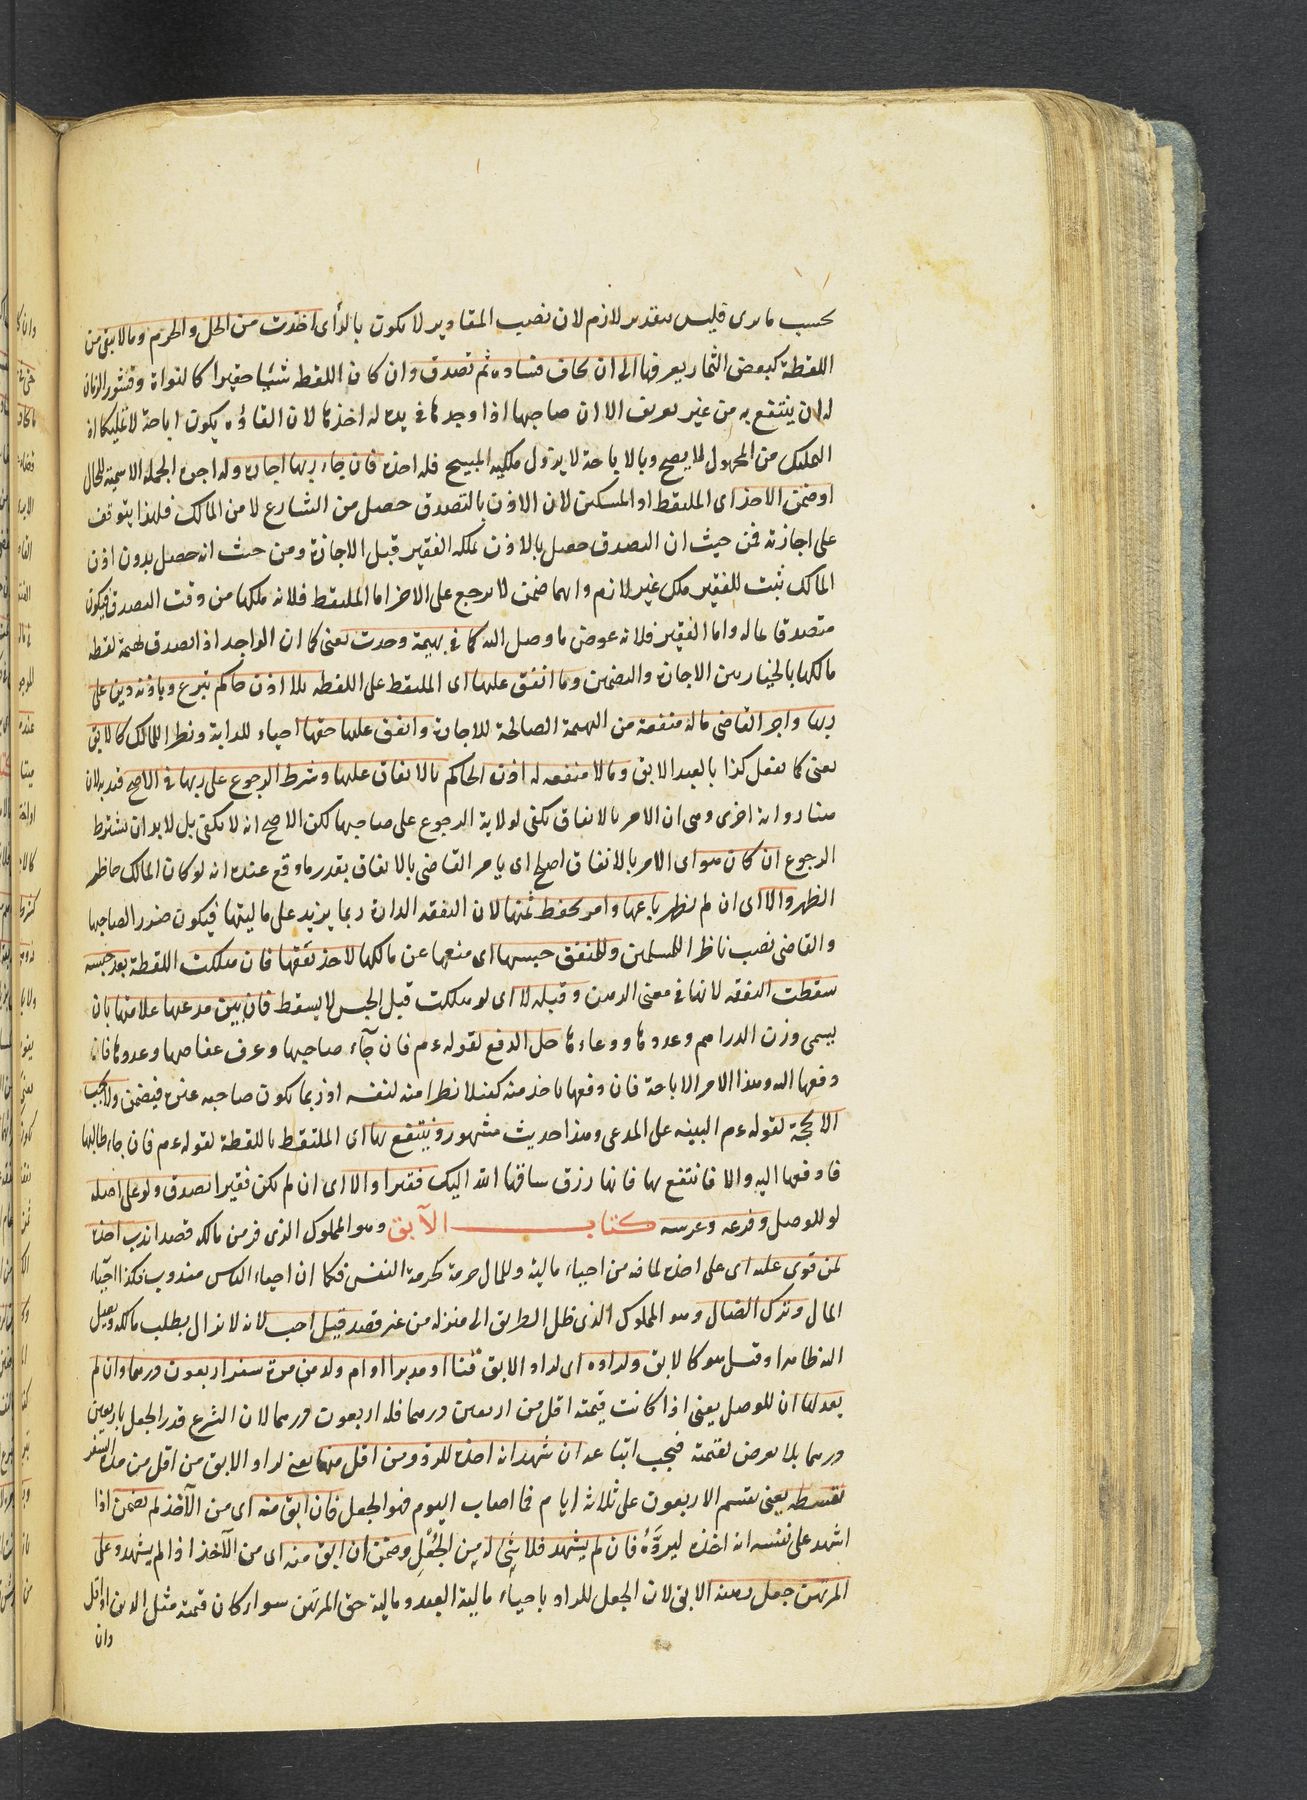 بحسب ما يرى فليس بتقدير لازم لان نصب المقادير لا يكون بالرأى اخذت من الحل والحرم وما لا يبقى من
اللقطة كبعض الثمار يعرفها الى ان يخاف فساده ثم تصدق وان كان اللقطة شيئا حقيرا كالنواة وقشور الرمان
له ان ينتفع به من غير تعريف الا ان صاحبها اذا وجدها فى يده له اخذها لان القاؤه يكون اباحة لا تمليكا اذ
التمليك من المجهول لا يصح وبالاباحة لا يزول ملكية المبيح فله اخذه فان جاء ربها اجازه وله اجره الجملة الاسمية للحال
او ضمن الآخذ اى الملتقط او المسكين لان الاذن بالتصدق حصل من الشارع لا من المالك فلهذا يتوقف
على اجازته فمن حيث ان التصدق حصل بالاذن يملكه الفقير قبل الاجازة ومن حيث انه حصل بدون اذن
المالك ثبت للفقير ملك غير لازم وايهما ضمن لا يرجع على الاخر اما الملتقط فلانه ملكها من وقت التصدق فيكون
متصدقا بماله واما الفقير فلانه عوض ما وصل اليه كما فى بهيمة وجدت يعنى كما ان الواجد اذا تصدق بهيمة لقطة
مالكها بالخيار بين الاجازة والتضمين وما انفق عليها اى الملتقط على اللقطة بلا اذن حاكم تبرع وباذنه دين على
ربها واجر القاضى ما له منفعة من البهيمة الصالحة للاجارة وانفق عليها حقها احياء للدابة ونظرا للمالك كالآبق
يعنى كما يفعل كذا بالعبد الابق وما لا منفعة له اذن الحاكم بالانفاق عليها وشرط الرجوع على ربها فى الاصح قيد به لان
هنا رواية اخرى وهى ان الامر بالانفاق يكفى لولاية الرجوع على صاحبها لكن الاصح انه لا يكفى بل لا بد ان يشترط
الرجوع ان كان هو اى الامر بالانفاق اصلح اى يأمر القاضى بالانفاق بقدر ما وقع عنده انه لو كان المالك حاظر
لظهر والا اى ان لم يظهر باعها وامر بحفظ ثمنها لان النفقة الدارة ربما يزيد على ماليتها فيكون ضررا لصاحبها
والقاضى نصب ناظرا للمسلمين وللمنفق حبسها اى منعها عن مالكها لاخذ نفقتها فان هلكت اللقطة بعد حبسه
سقطت النفقة لانها فى معنى الرهن وقبله لا اى لو هلكت قبل الحبس لا يسقط فان بين مدعيها علامتها بان
يسمى وزن الدراهم وعددها ووعاءها حل الدفع لقوله عم فان جاء صاحبها وعرف عفاصها وعددها فان
دفعها اليه وهذا الامر الاباحة فان دفعها يأخذ منه كفيلا نظرا منه لنفسه اذ ربما يكون صاحبه غيره فيضمن ولا يجب
الا بحجة لقوله عم البينة على المدعى وهذا حديث مشهور وينتفع بها اى الملتقط باللقطة لقوله عم فان جاء طالبها
فادفعها اليه والا فانتفع بها فانها رزق ساقها الله اليك فقيرا والا اى ان لم يكن فقيرا تصدق ولو على اصله
لو للوصل وفرعه وعرسه كتاب الآبق وهو المملوك الذى فر من مالكه قصدا ندب اخذه
لمن قوى عليه اى على اخذه لما فيه من احياء ماليته وللمال حرمة كحرمة النفس فكما ان احياء الناس مندوب فكذا احياء
المال وترك الضال وهو المملوك الذى ظل الطريق الى منزله من غير قصد قيل احب لانه لا يزال يطلب مالكه وصل
اليه ظاهرا وقيل هو كالابق ولراده اى لراد الابق قنا او مدبرا او ام ولد من مدة سفر اربعون درهما وان لم
يعدلها ان للوصل يعنى اذا كانت قيمته اقل من اربعين درهما فله اربعون درهما لان الشرع قدر الجعل باربعين
درهما بلا تعرض لقيمته فيجب اتباعه ان شهد انه اخذه للرد ومن اقل منها يعنى لراد الابق من اقل من مدة السفر
بقسطه يعنى يقسم الاربعون على ثلاثة ايام فما اصاب اليوم فهو الجعل فان ابق منه اى من الآخذ لم يضمن اذا
اشهد على نفسه انه اخذه ليردَّهُ فان لم يشهد فلا شئ له مِن الجُعْلِ وضمن ان ابق منه اى من الآخذ اذا لم يشهد وعلى
المرتهن جعل رهنه الابق لان الجعل للراد باحياء مالية العبد ومالية حق المرتهن سواء كان قيمته مثل الدين او اقل
وان